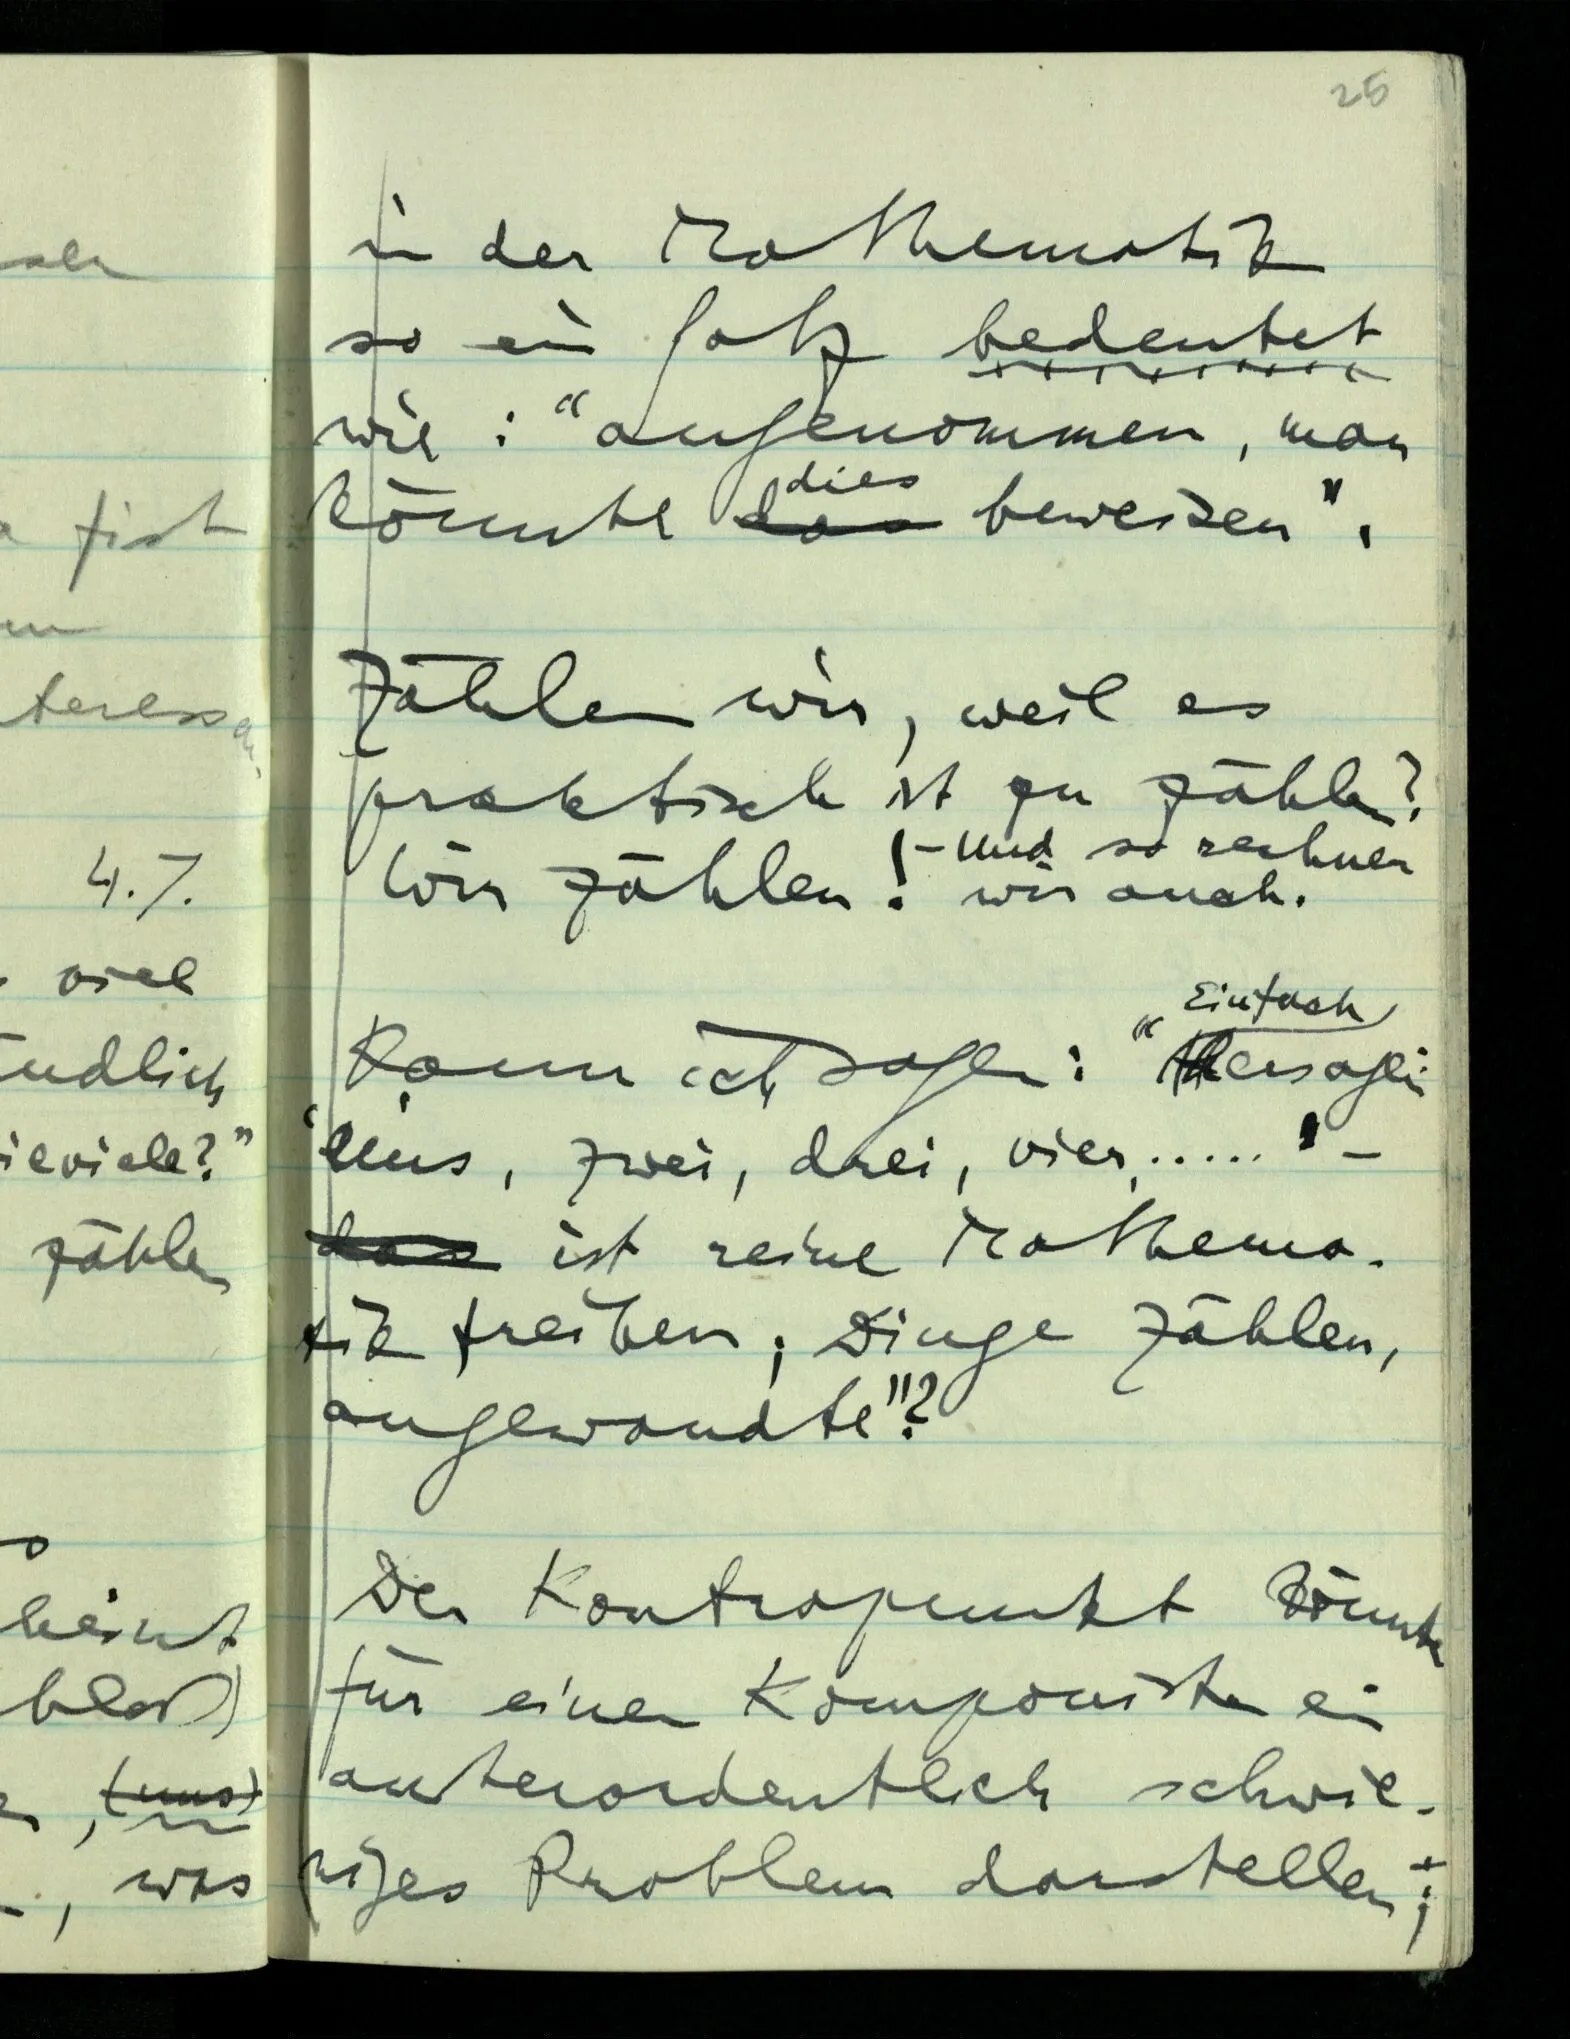 25
in der Mathematik
so ein Satz bedeutet
wie: "angenommen, man
könnte das dies beweisen".
Zählen wir, weil es
praktisch ist zu zählen?
Wir zählen! – Und so rechnen
wir auch.
Kann ich sagen: "Einfach
hersagen
'eins, zwei, drei, vier, ....." –
das ist reine Mathema-
tik treiben; Dinge zählen,
angewandte"?
Der Kontrapunkt könnte
für einen Komponisten ein
außerordentlich schwie-
riges Problem darstellen;
fist
teress
4.7.
viel
ndlich
ieviele?"
zählen
heint
bloß)
, (uns)
, was